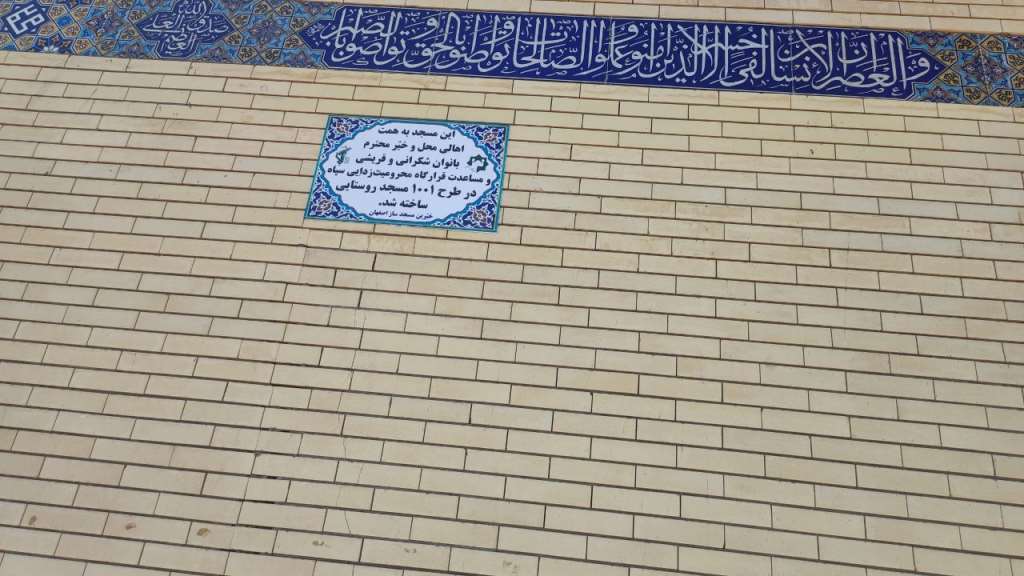 والعصر إن الانسان لفی خسر الا الذین امنوا وعملوا الصالحات وتواصوا بالحق وتواصوا بالصبر
صدق الله العلی العظیم
این مسجد به همت
اهالی محل و خیر محترم
بانوان شکرانی و قریشی
و مساعدت قرارگاه محرومیت‌زدایی سپاه
در طرح ۱۰۰۱ مسجد روستایی
ساخته شد.
خیرین مسجد ساز اصفهان